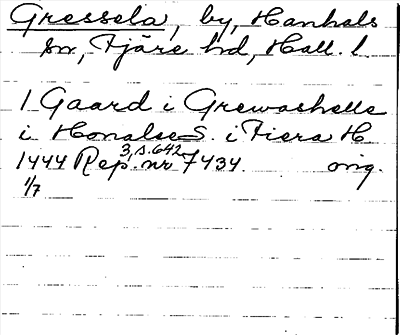 Gressela, by, Hanhals
sn, Fjäre hd, Hall. l.
1 Gaard i Grewashelle
i Honalse S. i Fiera H
1444 Rep. 3, s. 642 nr 7434. orig.
1/7